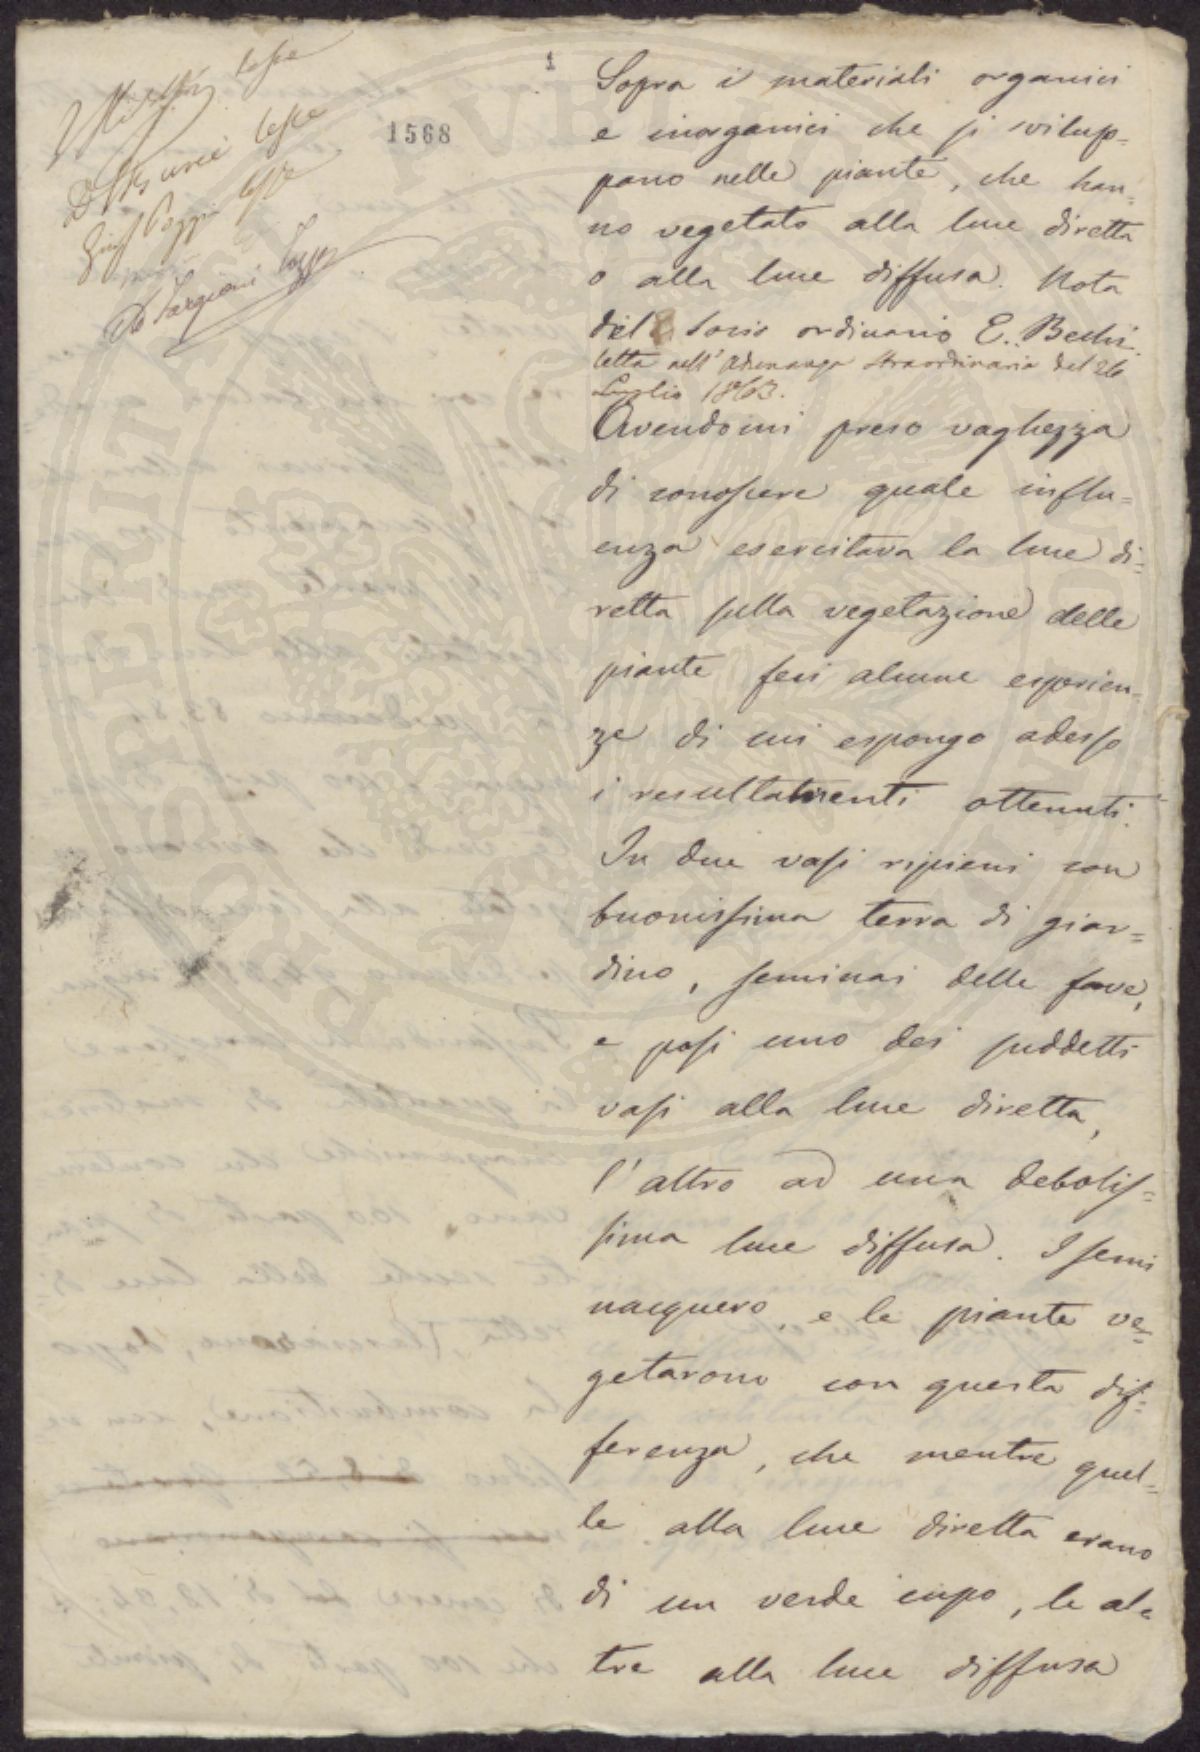 1
1568
lesse
lesse
Sopra i materiali organici
e inorganici che si svilup=
pano nelle piante, che han=
no vegetato alla luce diretta
o alla luce diffusa. Nota
del Socio ordinario E. Bechi.
letta nell'Adunanza straordinaria del 26
Luglio 1863.
Avendomi preso vaghezza
di conoscere quale influ=
enza esercitava la luce di=
retta sulla vegetazione delle
piante feci alcune esperien=
ze di cui espongo adesso
i resultamenti ottenuti.
In due vasi ripieni con
buonissima terra di giar=
dino, seminai delle fave,
e posi uno dei suddetti
vasi alla luce diretta,
l'altro ad una debolis=
sima luce diffusa. I semi
nacquero, e le piante ve=
getarono con questa dif=
ferenza, che mentre quel=
le alla luce diretta erano
di un verde cupo, le al=
tre alla luce diffusa